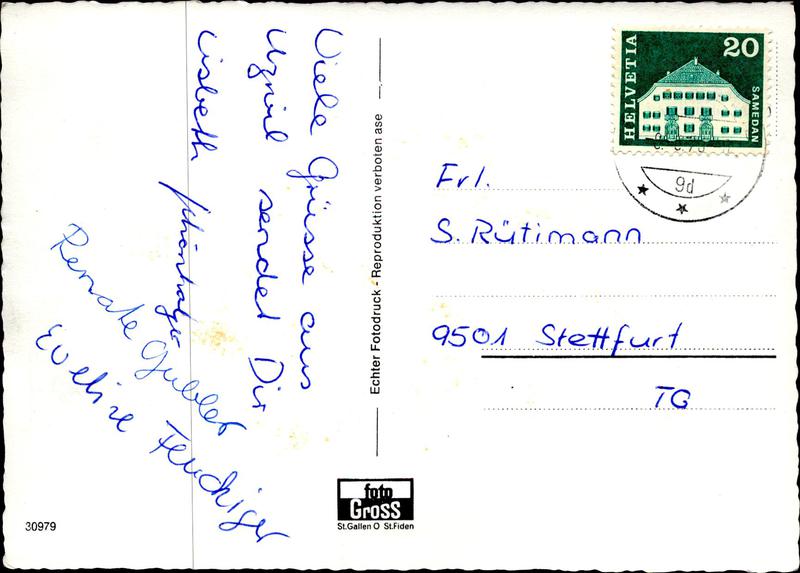 Viele Grüsse aus
Uzwil sendet Dir
Lisbeth
Renate Gubler
Eveline
Echter Fotodruck - Reproduktion verboten ase
HELVETIA
20
SAMEDAN
9d
Frl.
S. Rütimann
9501 Stettfurt
TG
foto
Gross
St.Gallen O St.Fiden
30979